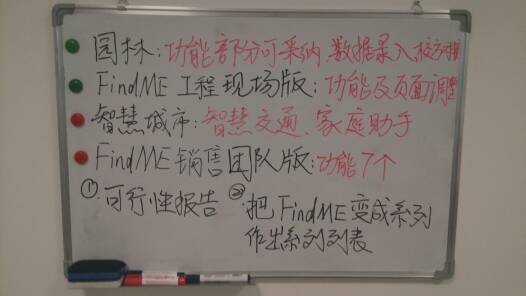 园林:功能部分可采纳 数据录入校对
FindME 工程现场版:功能及页面调整
智慧城市:智慧交通、家庭助手
FindME 销售团队版:功能7个
①:可行性报告 ②:把FindME变成系列
作出系列列表